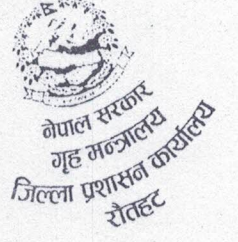 नेपाल सरकार
गृह मन्त्रालय
जिल्ला प्रशासन कार्यालय
रौतहट